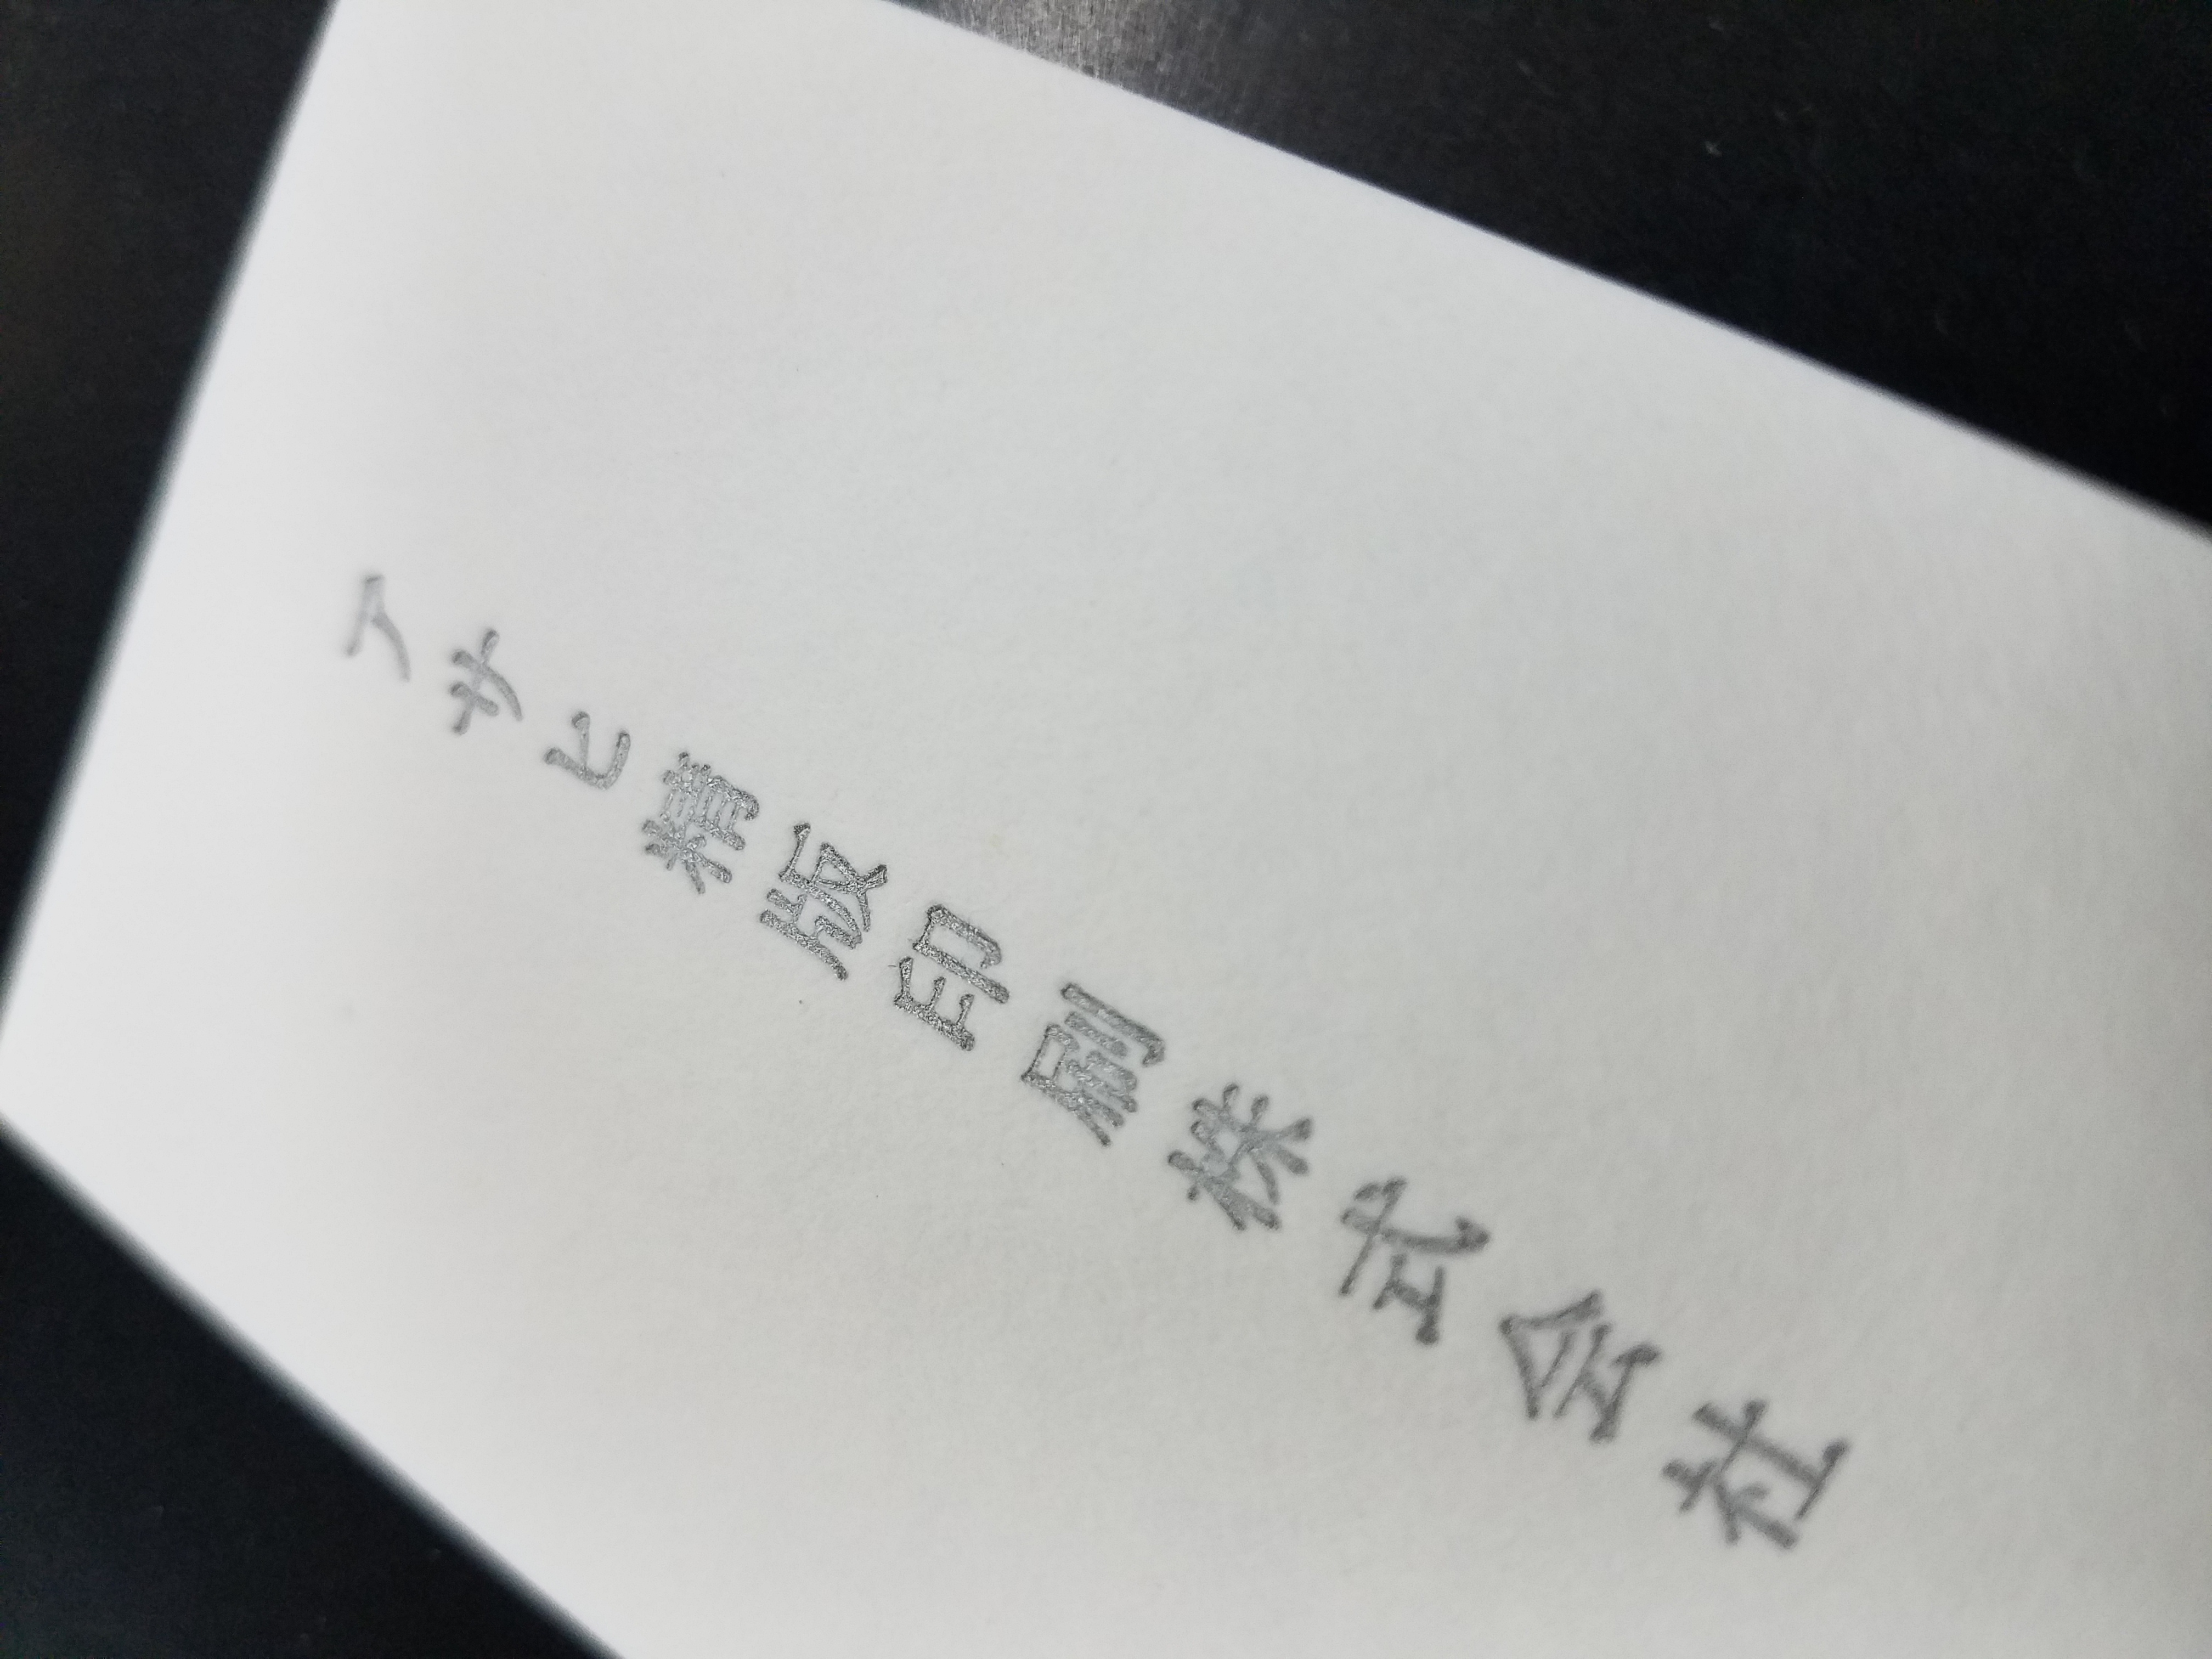 アサヒ精版印刷株式会社